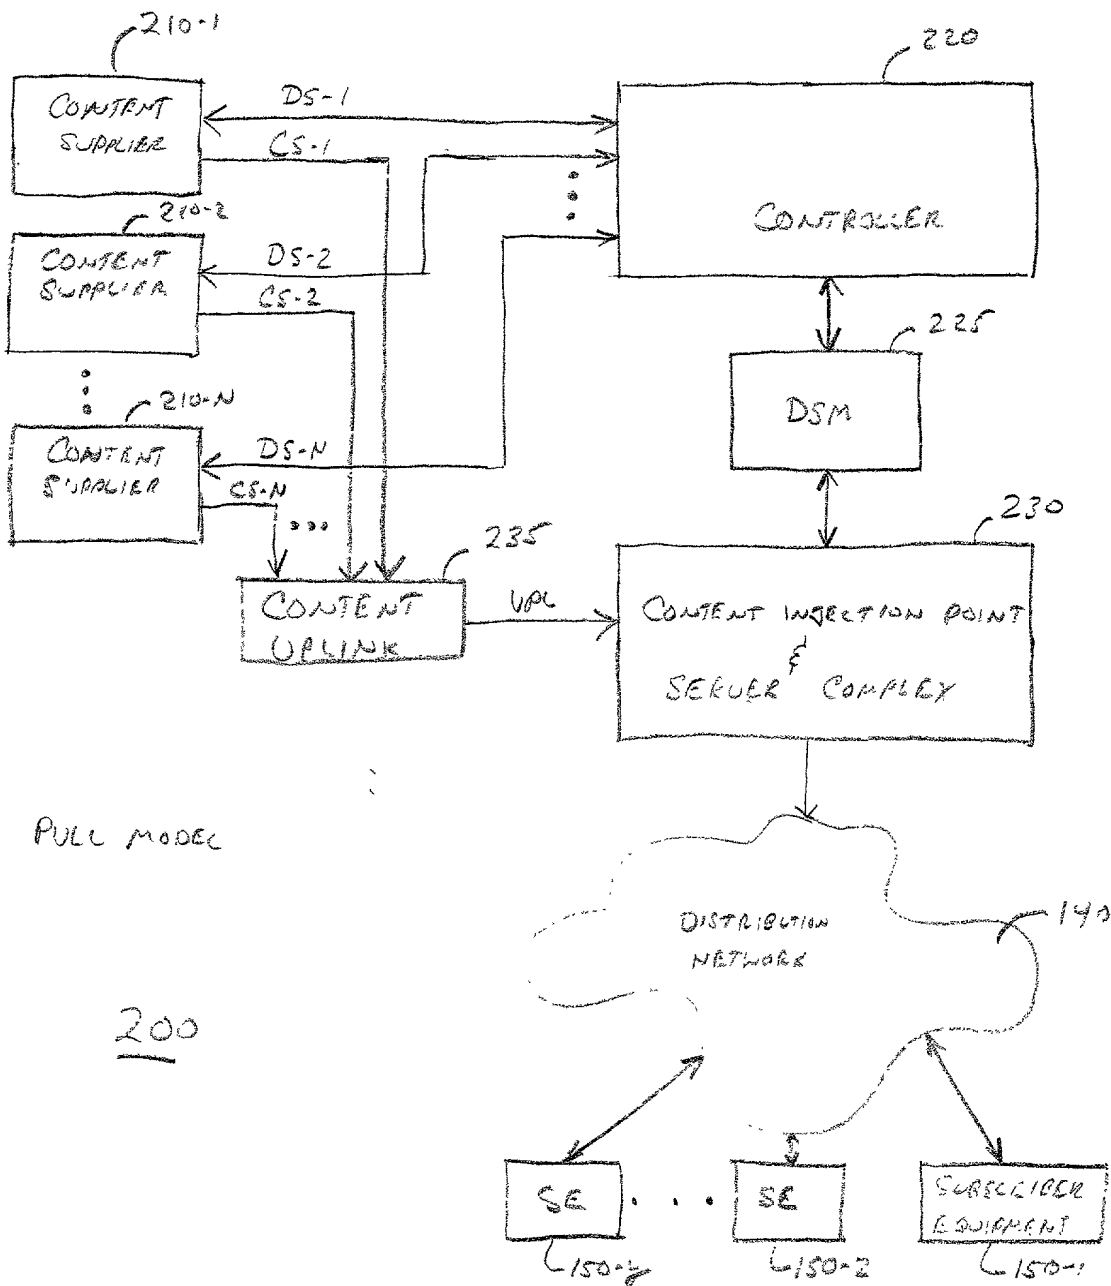 210-1
220
CONTENT
SUPPLIER
DS-1
CS-1
CONTROLLER
210-2
CONTENT
SUPPLIER
DS-2
CS-2
225
DSM
210-N
CONTENT
SUPPLIER
DS-N
CS-N
235
230
CONTENT
UPLINK
UPL
CONTENT INJECTION POINT
&
SERVER COMPLEX
PULL MODEL
DISTRIBUTION
NETWORK
140
200
SE
SE
SUBSCRIBER
EQUIPMENT
150-2
150-1